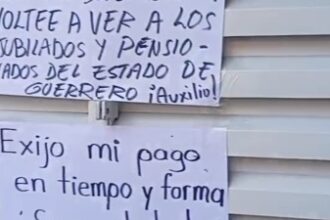 VOLTEE A VER A LOS
JUBILADOS Y PENSIO-
NADOS DEL ESTADO DE
GUERRERO ¡Auxilio!
Exijo mi pago
en tiempo y forma